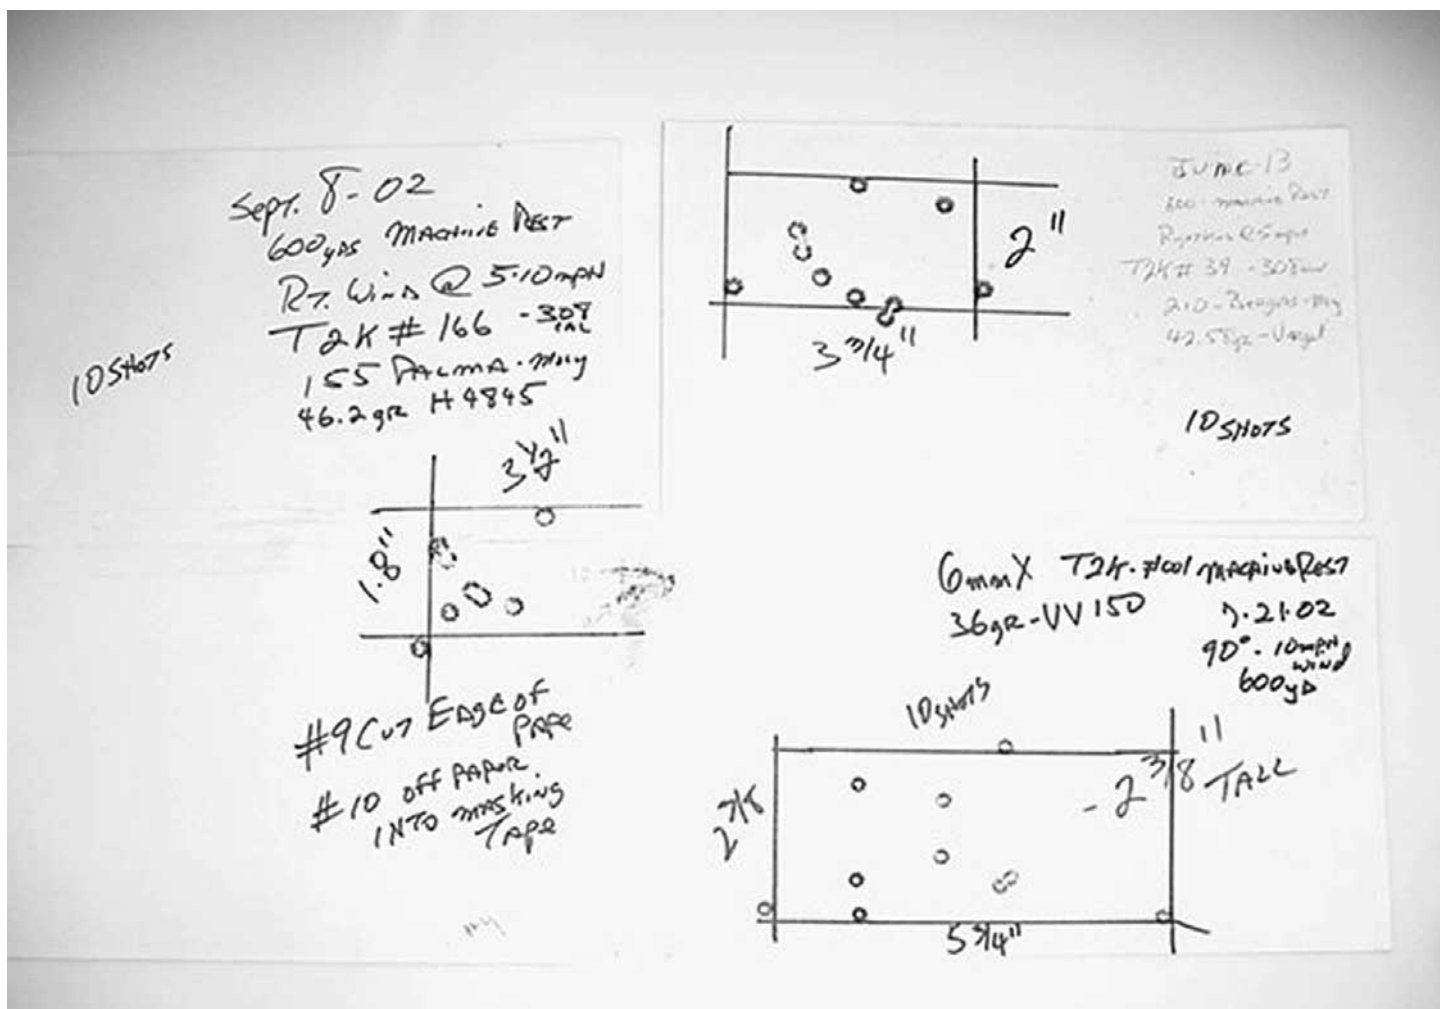 Sept. 8-02
600yds MACHINE REST
RT. WIND @ 5-10mpH
T2K # 166 -308 CAL
155 PALMA-Moly
46.2gr H4895
10 SHOTS
3 1/2"
1.8"
#9 CUT EDGE OF
PAPE
#10 OFF PAPER
INTO MASKING
TAPE
2"
3 3/4"
JUNE 13
600-MACHINE REST
@ 5mph
T2K # 39 -308
210-Bergers-Moly
42.5gr-Varget
10 SHOTS
6mmX T2K-#001 MACHINE REST
36gR-VV150
7-21-02
90°-10mpH
WIND
600yD
10 SHOTS
2 3/8
- 2 3/8" TALL
5 3/4"